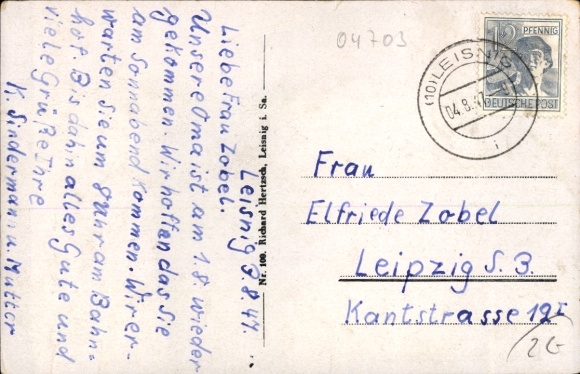 Leisnig 3.8.47.
Liebe Frau Zobel.
Unsere Oma ist am 1.8 wieder
gekommen. Wir hoffen das Sie
am Sonnabend kommen. Wir er-
warten Sie um 8 Uhr am Bahn-
hof. Bis dahin alles Gute und
viele Grüße Ihre
K. Sindermann u. Mutter
Nr. 100. Richard Hertzsch, Leisnig i. Sa.
04703
12 PFENNIG
DEUTSCHE POST
(10) LEISNIG
04.8.47
i
Frau
Elfriede Zobel
Leipzig S. 3.
Kantstrasse 12 I